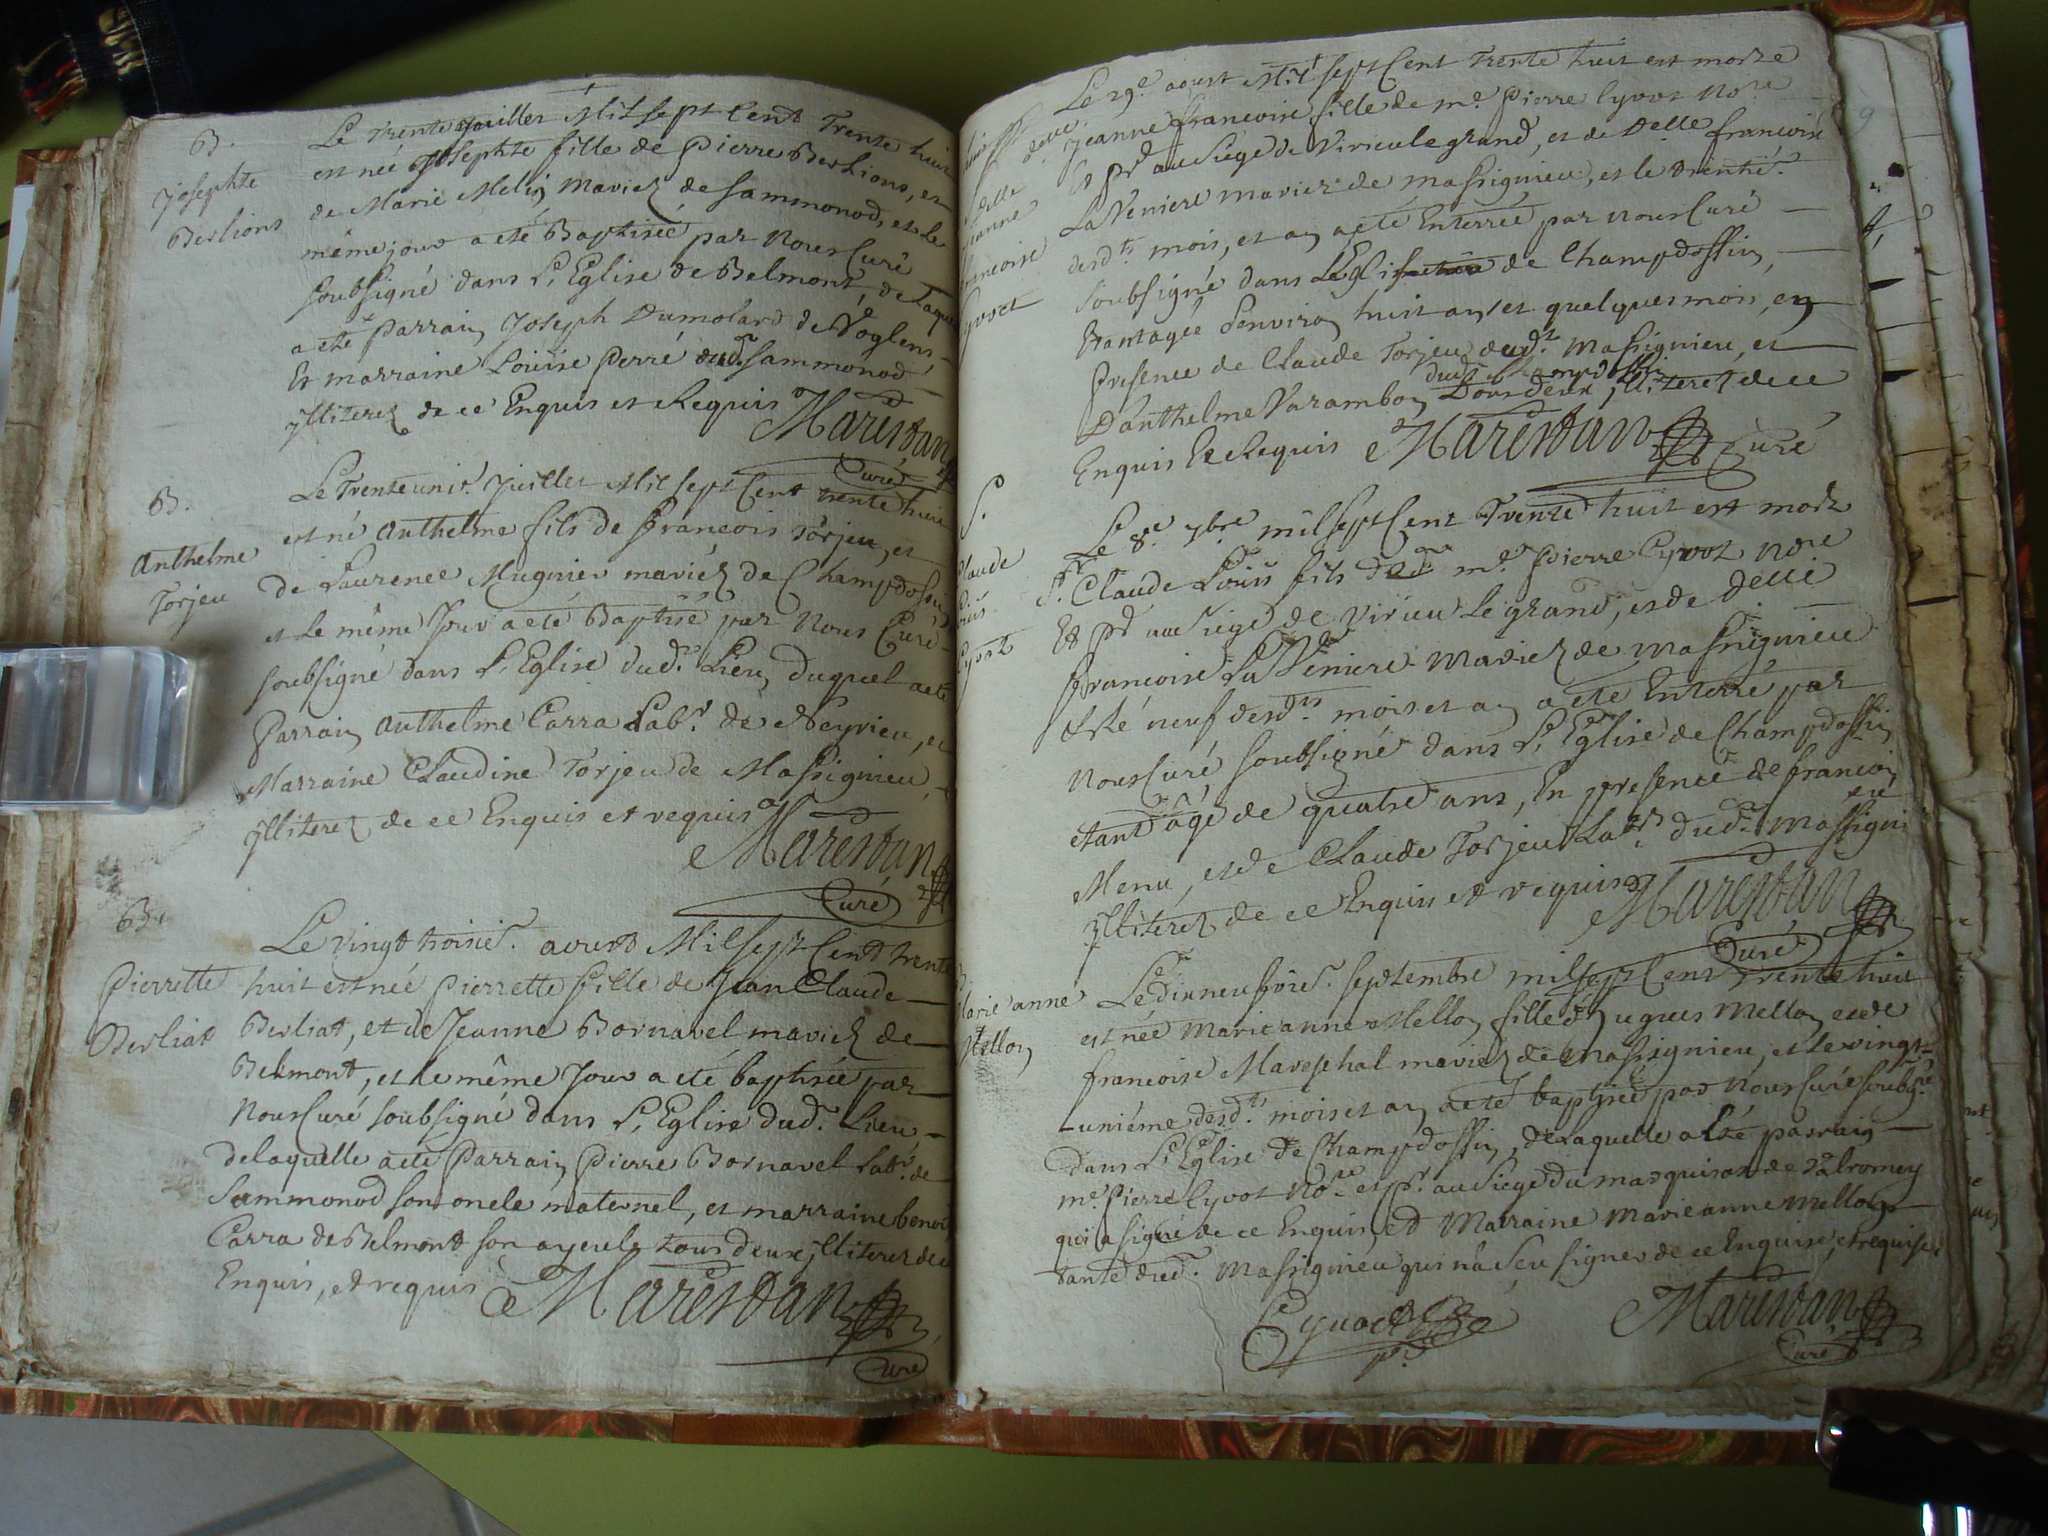 B.
Josephte
Berlions
Le trente Juillet Mil sept Cent Trente huit
est née Josephte fille de Pierre Berlions, et
de Marie Melin mariez de Sammonod, et le
même jour a eté Baptisée par Nous Curé
soubsigné dans L'Eglise de Belmont, de Laquelle
a eté parrain Joseph Dumolard de Voglens
Et marraine Louise Perré dud. Sammonod
jlliterez de ce Enquis et Requis
Marestan
Curé
B.
Anthelme
Torjeu
Le Trente unie. Juillet Mil sept Cent trente huit
est né Anthelme fils de francois Torjeu, et
de Laurence Mugnier mariez de Champdossin
et le même Jour a eté Baptisé par Nous Curé
soubsigné dans L'Eglise dud. Lieu, duquel a eté
Parrain Anthelme Carra Labr. de Neyrieu, et
Marraine Claudine Torjeu de Massignieu,
jlliterez de ce Enquis et requis
Marestan
Curé
B.
Pierrette
Berliat
Le vingt troisie. aoust Mil sept Cent trente
huit est née Pierrette fille de Jean Claude
Berliat, et de Jeanne Bornavel mariez de
Belmont, et le même Jour a eté baptisée par
Nous Curé soubsigné dans L'Eglise dud. Lieu,
de laquelle a eté Parrain Pierre Bornavel Labr. de
Sammonod son oncle maternel, et marraine benoi
Carra de Belmont son ayeule tous deux jlliterez de ce
Enquis, et requis
Marestan
Curé
delle
Jeanne
francoise
Cyvot
Le 29e. aoust Mil sept Cent trente huit est morte
Jeanne francoise fille de me. Pierre Cyvot Nore
Et pr. au Siege de Virieu le grand, et de Delle francoise
La Veniere mariez de Massignieu, et le trentie.
desdts. mois, et an a eté Enterrée par Nous Curé
soubsigné dans L'Eglise de Champdossin,
Etant agée d'environ huit ans et quelques mois, en
presence de Claude Torjeu dudt. Massignieu, et
dudt. Champdossin
D'anthelme Varambon Tous deux jlliterez de ce
Enquis Et Requis Marestan Curé
S.
Claude
Louis
Cyvot
Le 8e. 7bre mil sept Cent Trente huit est mort
Sr. Claude Louis fils de me. Pierre Cyvot Nore
Et pr. au Siege de Virieu Le grand, et de Delle
francoise La Veniere mariez de Massignieu
Et Le neuf desdts. mois et an a eté Enterré par
Nous Curé soubsigné dans L'Eglise de Champdossin
étant âgé de quatre ans, En presence de francois
Menu, et de Claude Torjeu Labrs. dud. Massigni
eu
jlliterez de ce Enquis et requis Marestan
Curé
B.
Marie anne
Mellon
Le dixneufvie. septembre mil sept Cent trente huit
est née Marie anne Mellon fille d'hugues Mellon et de
francoise Mareschal mariez de Massignieu, et le vingt
unième desdts. mois et an a eté baptisée par Nous Curé soubsigné
dans L'Eglise de Champdossin, de Laquelle a eté parrain
me. Pierre Cyvot Nore et pr. au Siege du marquisat de Valromey
qui a signé de ce Enquis, et Marraine Marie anne Mellon
tante dud. Massignieu qui n'a Sceu signer de ce Enquise, et requise
Cyvot
pr.
Marestan
Curé